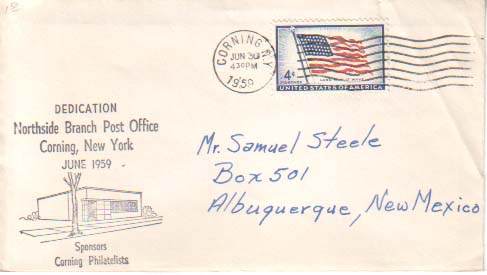 18
CORNING N.Y.
JUN 30
430PM
1959
4¢
LONG MAY IT WAVE
UNITED STATES OF AMERICA
DEDICATION
Northside Branch Post Office
Corning, New York
JUNE 1959
Sponsors
Corning Philatelists
Mr. Samuel Steele
Box 501
Albuquerque, New Mexico